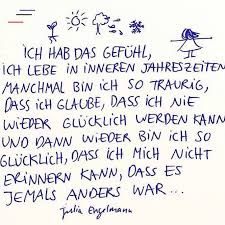 ICH HAB DAS GEFÜHL,
ICH LEBE IN INNEREN JAHRESZEITEN
MANCHMAL BIN ICH SO TRAURIG,
DASS ICH GLAUBE, DASS ICH NIE
WIEDER GLÜCKLICH WERDEN KANN
UND DANN WIEDER BIN ICH SO
GLÜCKLICH, DASS ICH MICH NICHT
ERINNERN KANN, DASS ES
JEMALS ANDERS WAR...
Julia Engelmann